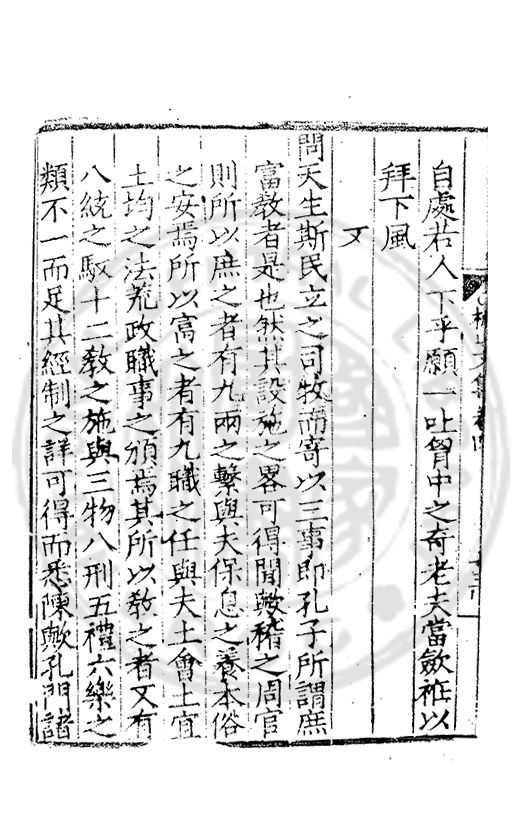 自處若人下乎願一吐胷中之奇老夫當歛袵以
拜下風
又
問天生斯民立之司牧而寄以三事即孔子所謂庶
富教者是也然其設施之畧可得聞歟稽之周官
則所以庶之者有九兩之繫與夫保息之養本俗
之安焉所以富之者有九職之任與夫土會土宜
土均之法荒政職事之頒焉其所以教之者又有
八統之馭十二教之施與三物八刑五禮六樂之
類不一而足其經制之詳可得而悉陳歟孔門諸